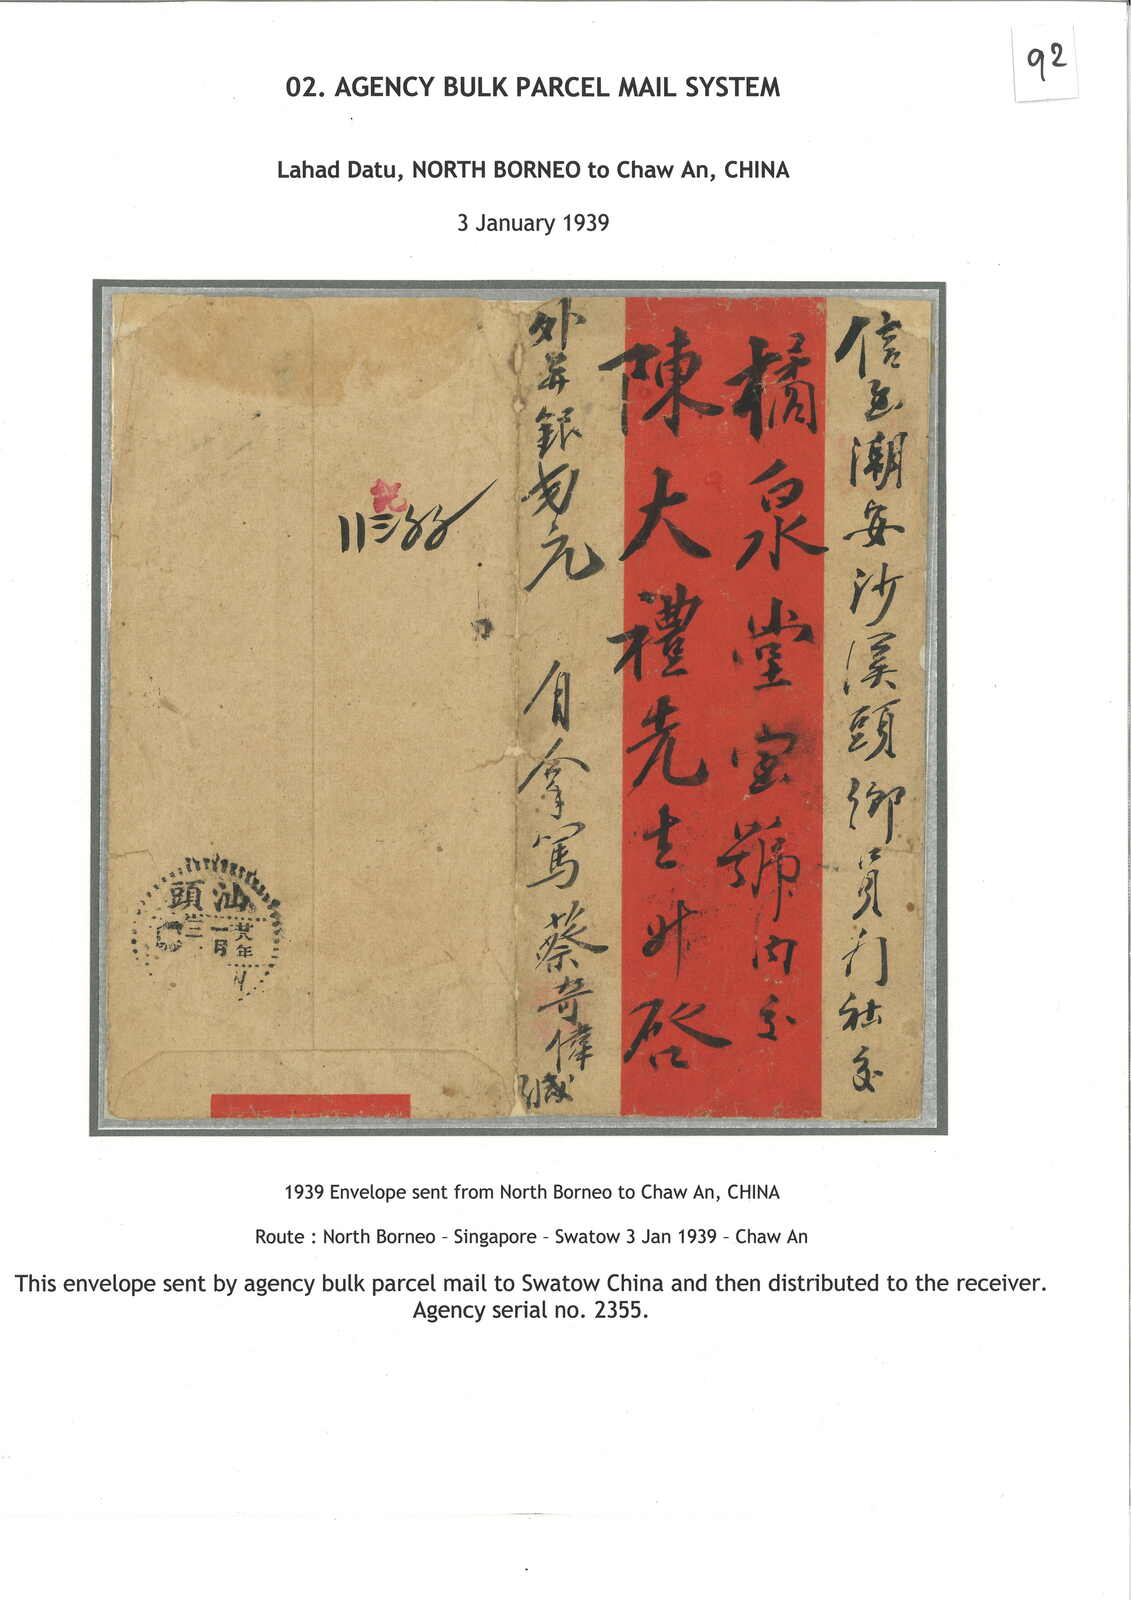 92
02. AGENCY BULK PARCEL MAIL SYSTEM
Lahad Datu, NORTH BORNEO to Chaw An, CHINA
3 January 1939
信至潮安沙溪頭鄉員利社交
橘泉堂宝號內交
陳大禮先生升啓
外并銀 元 自拿篤蔡奇偉緘
汕頭
廿八年
一月
三
1939 Envelope sent from North Borneo to Chaw An, CHINA
Route : North Borneo – Singapore – Swatow 3 Jan 1939 – Chaw An
This envelope sent by agency bulk parcel mail to Swatow China and then distributed to the receiver.
Agency serial no. 2355.